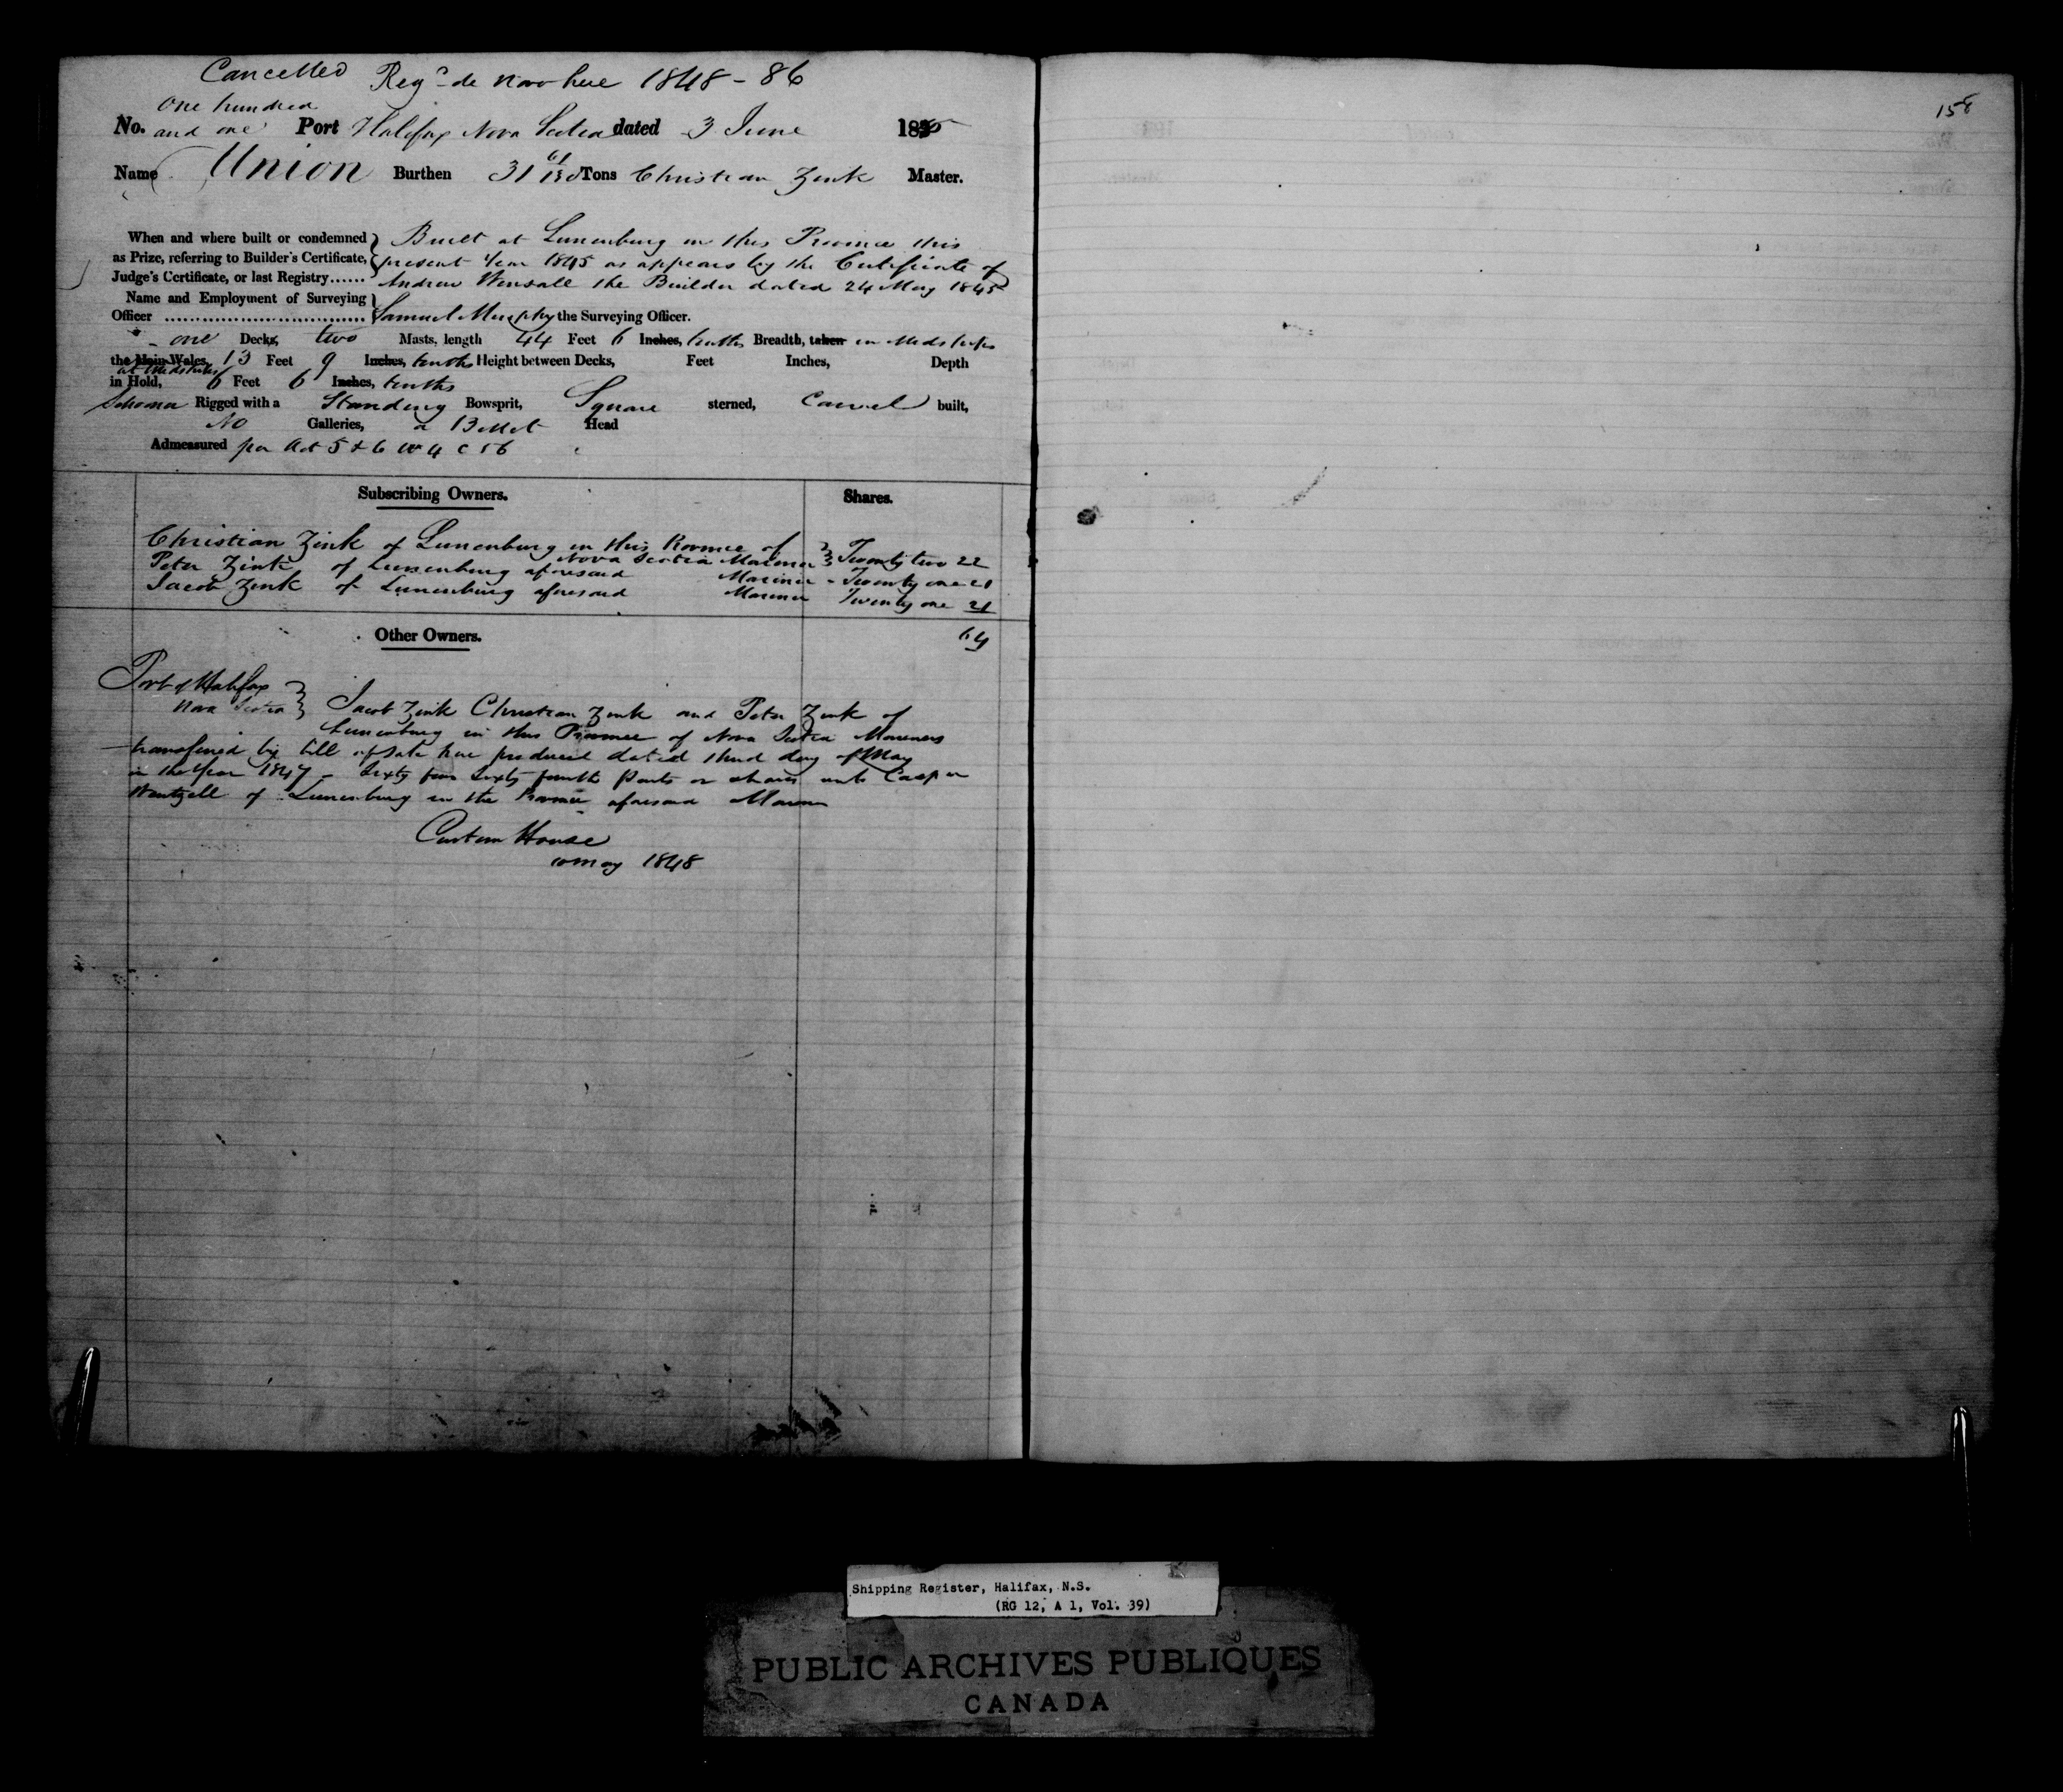 Cancelled Regd de novo here 1848 - 86
One hundred
No. and one Port Halifax Nova Scotia dated 3 June 1845
Name Union Burthen 31 61/130 Tons Christian Zink Master.
When and where built or condemned } Built at Lunenburg in this Province this
as Prize, referring to Builder's Certificate, present Year 1845 as appears by the Certificate of
Judge's Certificate, or last Registry...... Andrew Wensall the Builder dated 24 May 1845
Name and Employment of Surveying }
Officer ................................ Samuel Murphy the Surveying Officer.
one Decks, two Masts, length 44 Feet 6 Inches, tenths Breadth, taken in Midships
the Main Wales, 13 Feet 9 Inches, tenths Height between Decks, Feet Inches, Depth
at Midships
in Hold, 6 Feet 6 Inches, tenths
Schooner Rigged with a Standing Bowsprit, Square sterned, Carvel built,
No Galleries, a Billet Head
Admeasured per Act 5 & 6 W 4 C 56
Subscribing Owners. Shares.
Christian Zink of Lunenburg in this Province of
Nova Scotia Mariner } Twenty two 22
Peter Zink of Lunenburg aforesaid Mariner - Twenty one 21
Jacob Zink of Lunenburg aforesaid Mariner Twenty one 21
Other Owners. 64
Port of Halifax
Nova Scotia } Jacob Zink Christian Zink and Peter Zink of
Lunenburg in this Province of Nova Scotia Mariners
transferred by bill of Sale here produced dated third day of May
in the Year 1847 - Sixty four Sixty fourth Parts or shares unto Casper
Wentzell of Lunenburg in the Province aforesaid Mariner
Custom House
10 May 1848
158
Shipping Register, Halifax, N.S.
(RG 12, A 1, Vol. 39)
PUBLIC ARCHIVES PUBLIQUES
CANADA